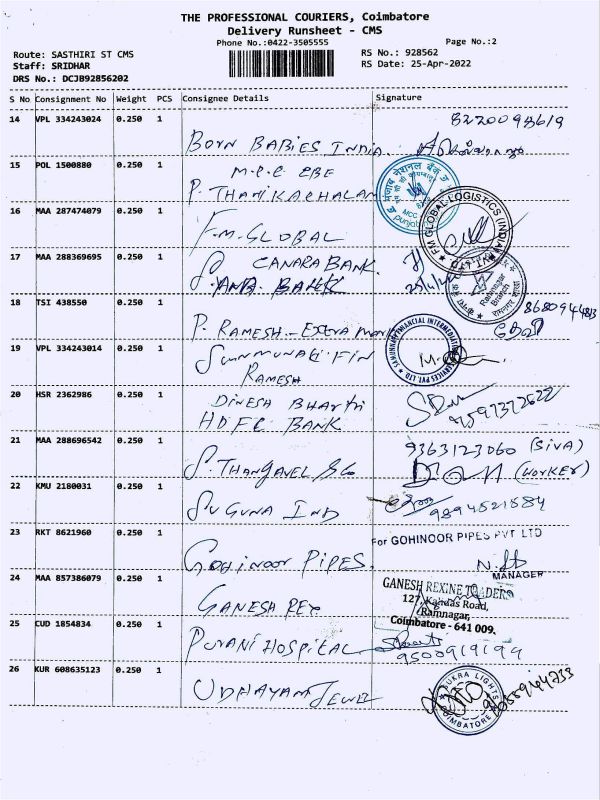 THE PROFESSIONAL COURIERS, Coimbatore
Delivery Runsheet - CMS
Phone No.:0422-3505555
Page No.:2
Route: SASTHIRI ST CMS
RS No.: 928562
Staff: SRIDHAR
RS Date: 25-Apr-2022
DRS No.: DCJB92856202
S No Consignment No Weight PCS Consignee Details Signature
14 VPL 334243024 0.250 1
BORN BABIES INDIA.
15 POL 1500880 0.250 1
M.C.C
P. THANIKACHALAM
16 MAA 287474079 0.250 1
F.M. GLOBAL
FM GLOBAL LOGISTICS (INDIA)
17 MAA 288369695 0.250 1
CANARA BANK.
Ramnagar
Branch
18 TSI 438550 0.250 1
P. RAMESH - EXTRA MARK
8680944813
19 VPL 334243014 0.250 1
FIN
RAMESH
20 HSR 2362986 0.250 1
DINESH BHARTI
HDFC BANK
9597372622
21 MAA 288696542 0.250 1
9363123060 (SIVA)
S. THANGAVEL & CO
(WORKER)
22 KMU 2180031 0.250 1
SUGUNA IND
9894521584
23 RKT 8621960 0.250 1
For GOHINOOR PIPES PVT LTD
GOHINOOR PIPES.
MANAGER
24 MAA 857386079 0.250 1
GANESH REX
GANESH REXINE TRADERS
127, Kalidas Road,
Ramnagar,
Coimbatore - 641 009.
25 CUD 1854834 0.250 1
PURANI HOSPITAL
9500919199
26 KUR 608635123 0.250 1
UDHAYAM JEWEL
SUKRA LIGHTS
COIMBATORE